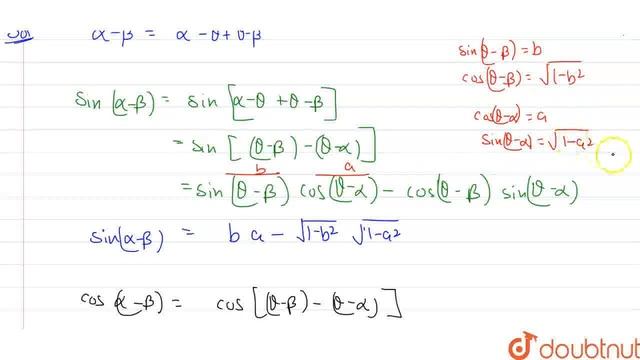 Sol α-β = α-θ+θ-β
sin(θ-β) = b
cos(θ-β) = √1-b²
cos(θ-α) = a
sin(θ-α) = √1-a²
sin(α-β) = sin[α-θ + θ-β]
= sin[(θ-β)-(θ-α)]
b a
= sin(θ-β) cos(θ-α) - cos(θ-β) sin(θ-α)
sin(α-β) = b a - √1-b² √1-a²
cos(α-β) = cos[(θ-β)-(θ-α)]
doubtnut